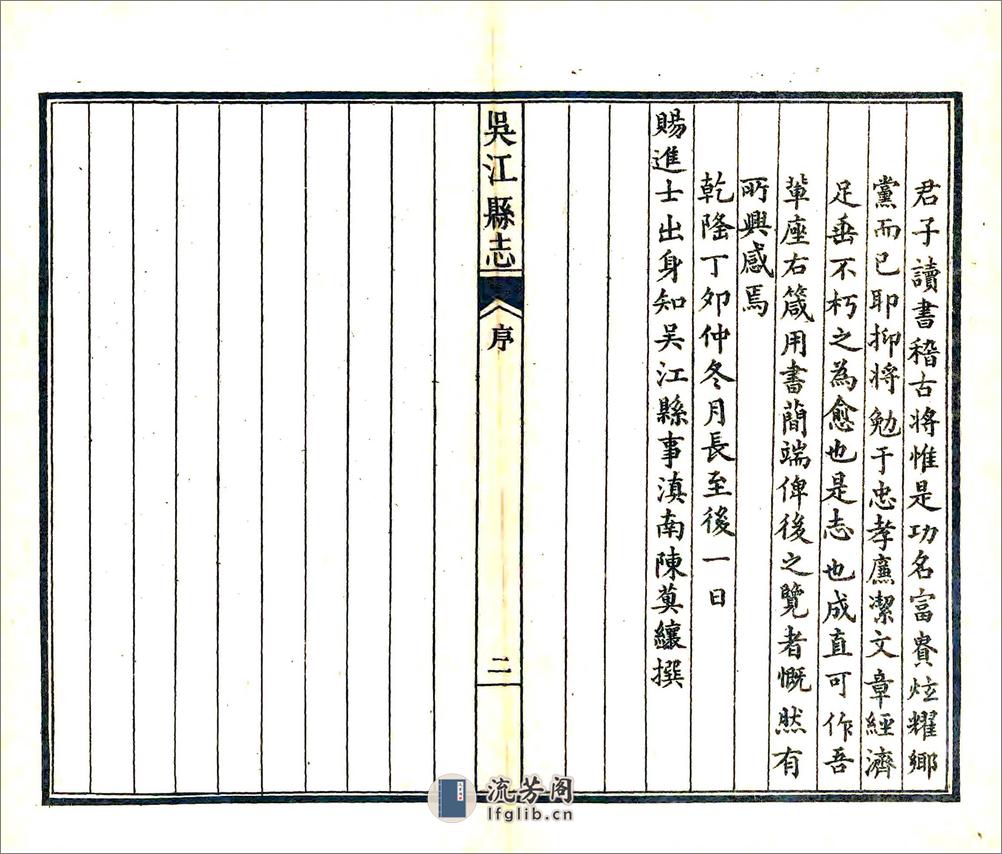 君子讀書稽古將惟是功名富貴炫耀鄉
黨而已耶抑將勉于忠孝廉潔文章經濟
足垂不朽之為愈也是志也成直可作吾
軰座右箴用書簡端俾後之覽者慨然有
所興感焉
乾隆丁夘仲冬月長至後一日
賜進士出身知吴江縣事滇南陳𦶜纕撰
吳江縣志
序
二
流芳阁
lfglib.cn